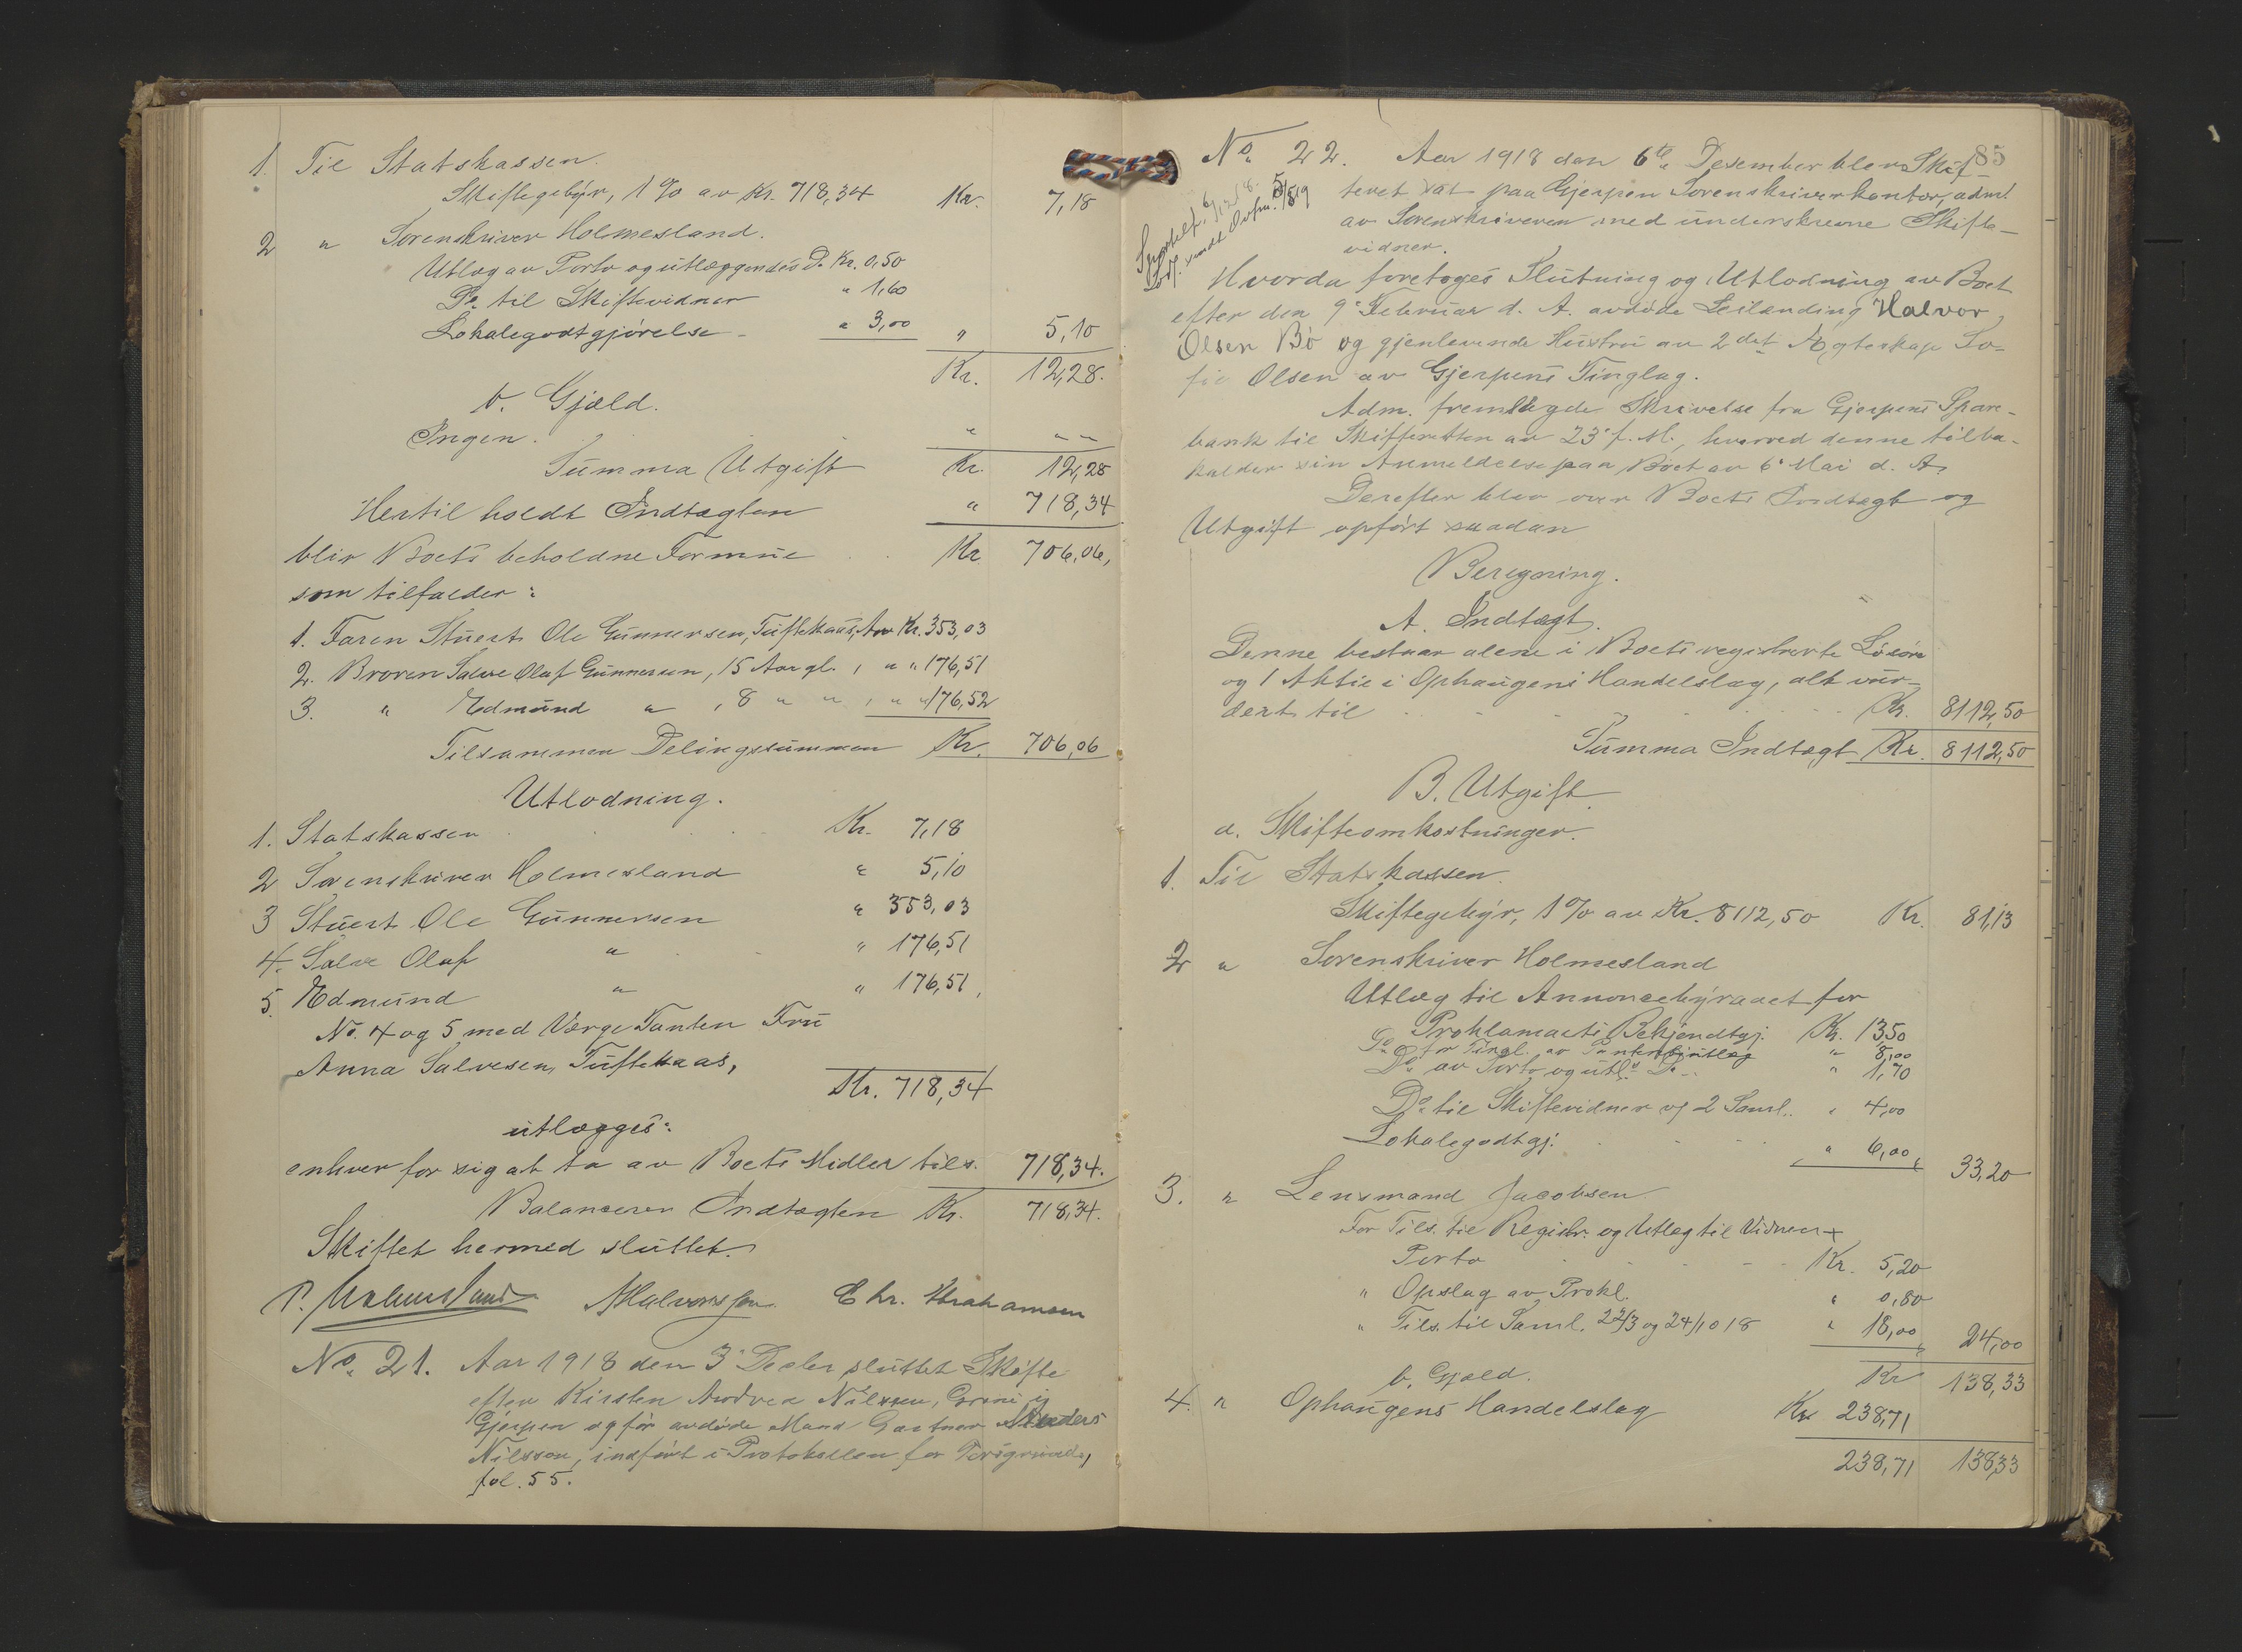 1. Til Statskassen.
Skiftegebyr, 1 % av Kr. 718,34 Kr. 7,18
2 " Sorenskriver Holmesland.
Utlæg av Porto og utlæggendes Do Kr. 0,50
Do til Skiftevidner " 1,60
Lokalegodtgjørelse - " 3,00 " 5,10
Kr. 12,28.
b. Gjæld.
Ingen. " " "
Summa Utgift Kr. 12,28
Hertil holdt Indtægten " 718,34
blir Boets beholdne Formue Kr 706,06,
som tilfalder:
1. Faren Stuert Ole Gunnersen, Tuftekaas, Arv Kr. 353,03
2. Broren Salve Olaf Gunnersen, 15 Aar gl. , " " 176,51
3. " Edmund " , 8 " " , " " 176,52
Tilsammen Delingssummen Kr. 706,06
Utlodning.
1. Statskassen Kr. 7,18
2 Sorenskriver Holmesland " 5,10
3 Stuert Ole Gunnersen " 353,03
4. Salve Olaf " " 176,51
5. Edmund " " 176,51,
No. 4 og 5 med Værge Tanten Fru
Anna Salvesen, Tuftekaas,
Kr. 718,34
utlægges:
enhver for sig at ta av Boets Midler tils. 718,34.
Balancerer Indtægten Kr. 718,34.
Skiftet hermed sluttet.
P. Holmesland AHalvorsen Chr. Abrahamsen
No. 21. Aar 1918 den 3' Decbr sluttet Skifte
efter Kirsten Andrea Nilssen, Grini i
Gjerpen og før avdøde Mand Gartner Anders
Nilsson, indført i Protokollen for Porsgrund,
fol. 55.
85
No. 22. Aar 1918 den 6te Desember blev Skif-
teret sat paa Gjerpen Sorenskriverkontor, admt
av Sorenskriveren med underskrevne Skifte-
vidner.
Hvorda foretoges Slutning og Utlodning av Boet
efter den 9' Februar d. A. avdøde Leilænding Halvor
Olsen Bø og gjenlevende Hustru av 2det Ægteskap So-
fie Olsen av Gjerpens Tinglag.
Adm. fremlagde Skrivelse fra Gjerpens Spare-
bank til Skifteretten av 23' f. M., hvorved denne tilba-
kalder sin Anmeldelse paa Boet av 6' Mai d. A.
Derefter blev over Boets Indtægt og
Utgift opført saadan
Beregning.
A. Indtægt.
Denne bestaar alene i Boets registrerte Løsøre
og 1 Aktie i Ophaugens Handelslag, alt vur-
dert til Kr. 8112,50
Summa Indtægt Kr. 8112,50
B. Utgift.
a. Skifteomkostninger.
1. Til Statskassen.
Skiftegebyr, 1 % av Kr. 8112,50 Kr. 81,13
2 " Sorenskriver Holmesland
Utlæg til Annoncebyraaet for
Proklamaets Bekjendtgj. Kr. 13,50
Do for Tingl. av " 8,00
Do av Porto og utl. Do " 1,70
Do til Skiftevidner og 2 Saml. " 4,00
Lokalegodtgj. " 6,00 33,20
3. " Lensmand Jacobsen
For Tils. til Registr. og Utlæg til Vidner +
Porto Kr. 5,20
" Opslag av Prokl. " 0,80
" Tils. til Saml. 22/3 og 24/10 18 " 18,00 24,00
b. Gjæld. Kr 138,33
4. " Ophaugens Handelslag Kr 238,71
238,71 138,33